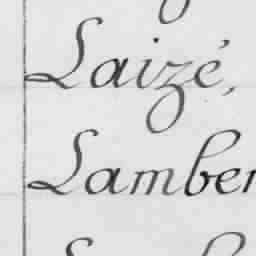 Laizé,
Lamber